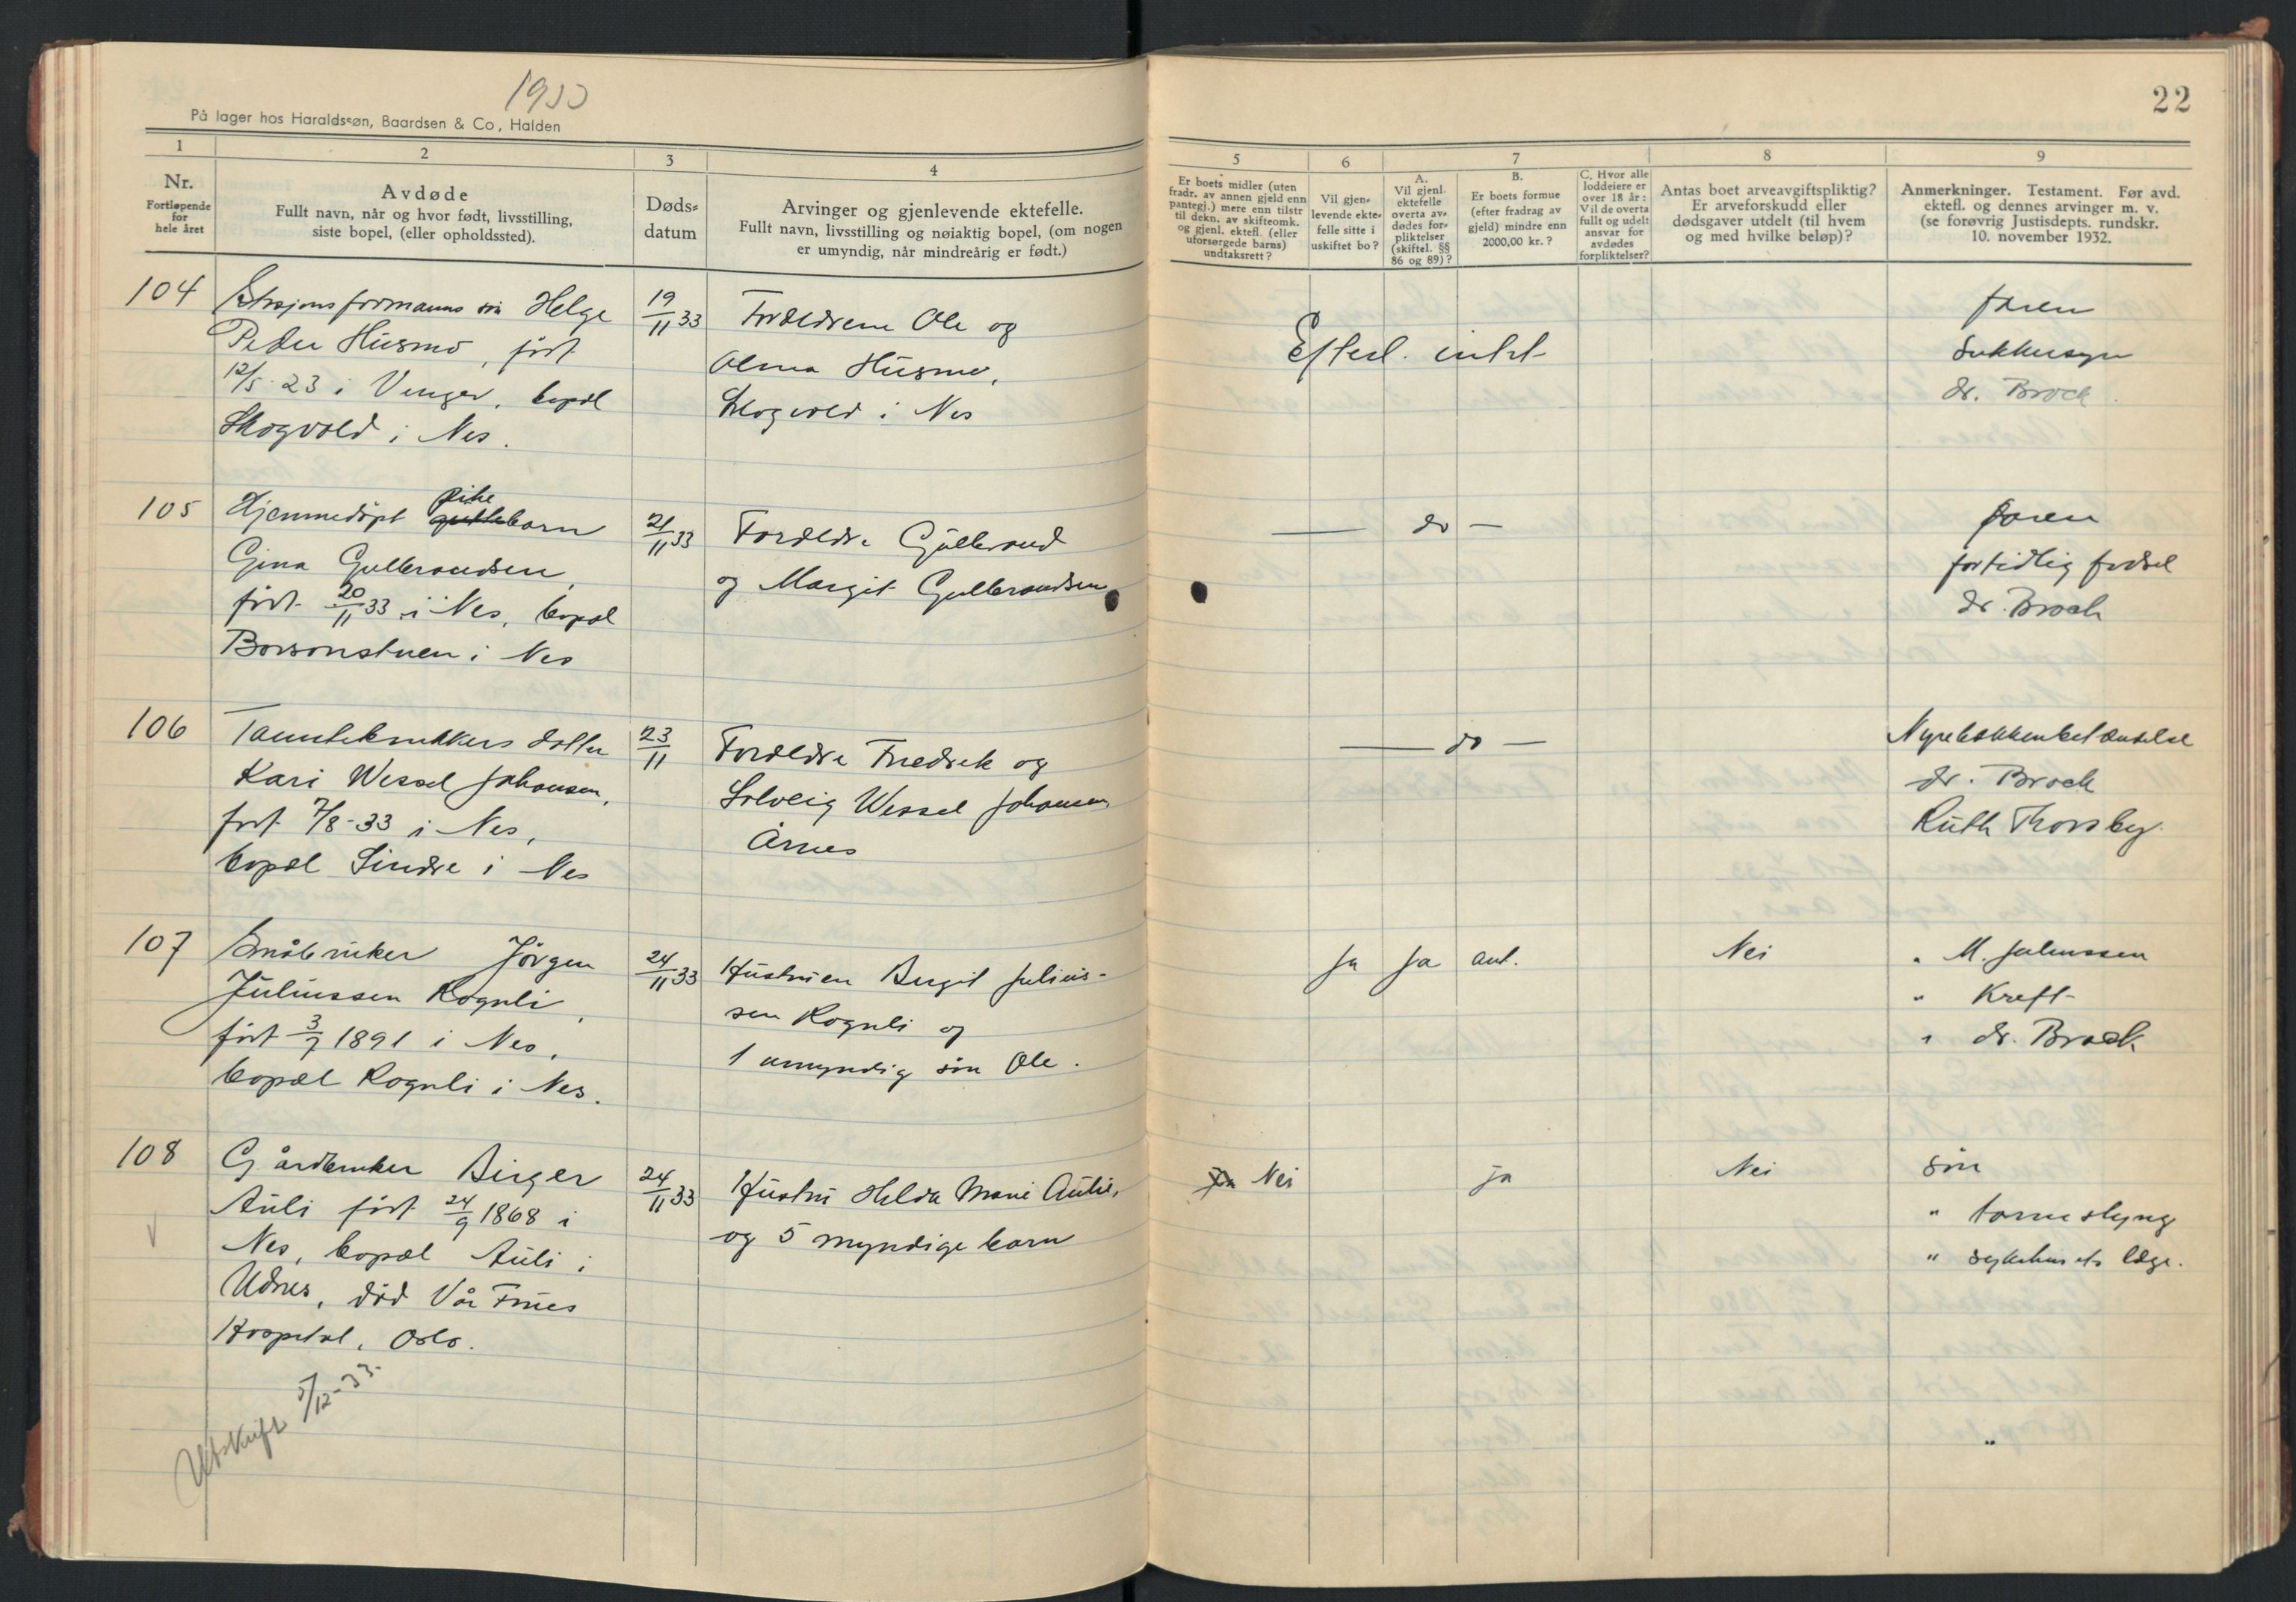 1933
På lager hos Haraldssøn, Baardsen & Co, Halden
22
1
2
3
4
5
6
7
8
9
Nr.
Fortløpende
for
hele året
Avdøde
Fullt navn, når og hvor født, livsstilling,
siste bopel, (eller opholdssted).
Døds-
datum
Arvinger og gjenlevende ektefelle.
Fullt navn, livsstilling og nøiaktig bopel, (om nogen
er umyndig, når mindreårig er født.)
Er boets midler (uten
fradr. av annen gjeld enn
pantegj.) mere enn tilstr
til dekn. av skifteomk.
og gjenl. ektefl. (eller
uforsørgede barns)
undtaksrett?
Vil gjen-
levende ekte-
felle sitte i
uskiftet bo?
A.
Vil gjenl.
ektefelle
overta av-
dødes for-
pliktelser
(skiftel. §§
86 og 89)?
B.
Er boets formue
(efter fradrag av
gjeld) mindre enn
2000,00 kr.?
C. Hvor alle
loddeiere er
over 18 år:
Vil de overta
fullt og udelt
ansvar for
avdødes
forpliktelser?
Antas boet arveavgiftspliktig?
Er arveforskudd eller
dødsgaver utdelt (til hvem
og med hvilke beløp)?
Anmerkninger. Testament. Før avd.
ektefl. og dennes arvinger m. v.
(se forøvrig Justisdepts. rundskr.
10. november 1932.
104
Stasjonsformanns søn Helge
Peder Husmo, født
12/5-23 i Venger, bopæl
Skogvold i Nes.
19/11 33
Forældrene Ole og
Alma Husmo,
Skogvold i Nes
Efterl. intet
faren
Sukkersyke
dr. Broch
105
Hjemmedøpt pike guttebarn
Gina Gulbrandsen,
født 20/11 33 i Nes, bopæl
Borsonstuen i Nes
21/11 33
Forældre Gulbrand
og Margit Gulbrandsen
— do —
faren
for tidlig fødsel
dr. Broch
106
Tannteknikkers datter
Kari Wessel Johansen,
født 7/8-33 i Nes,
bopæl Lindre i Nes
23/11
Forældre Fredrik og
Solveig Wessel Johansen
Årnes
— do —
Nyrebekkenbetændelse
dr. Broch
Ruth Thorsby
107
Småbruker Jørgen
Juliussen Rognli,
født 3/7 1891 i Nes,
bopæl Rognli i Nes.
24/11 33
Hustruen Birgit Julius-
sen Rognli og
1 umyndig søn Ole.
Ja Ja ant.
Nei
" M. Juliussen
" Kreft
" dr. Broch
108
Gårdbruker Birger
Auli født 24/9 1868 i
Nes, bopæl Auli i
Udnes, død Vår Frues
Hospital, Oslo.
24/11 33
Hustru Helda Marie Aulie,
og 5 myndige barn
Ja Nei
ja
Nei
søn
" tarmslyng
" sykehusets læge.
Utskrift 5/12-33